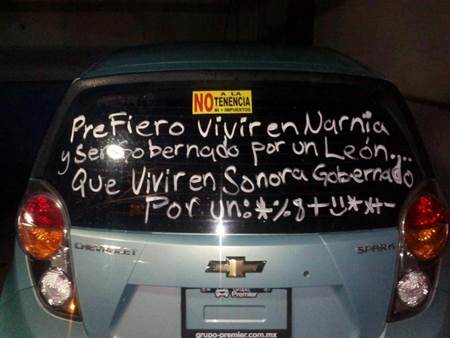 NO A LA
TENENCIA
NI + IMPUESTOS
PreFiero vivir en Narnia
y Ser Gobernado por un León...
Que Vivir en Sonora Gobernado
Por un:*%8+!!)*x*+-
CHEVROLET
SPARK
Premier
grupo-premier.com.mx